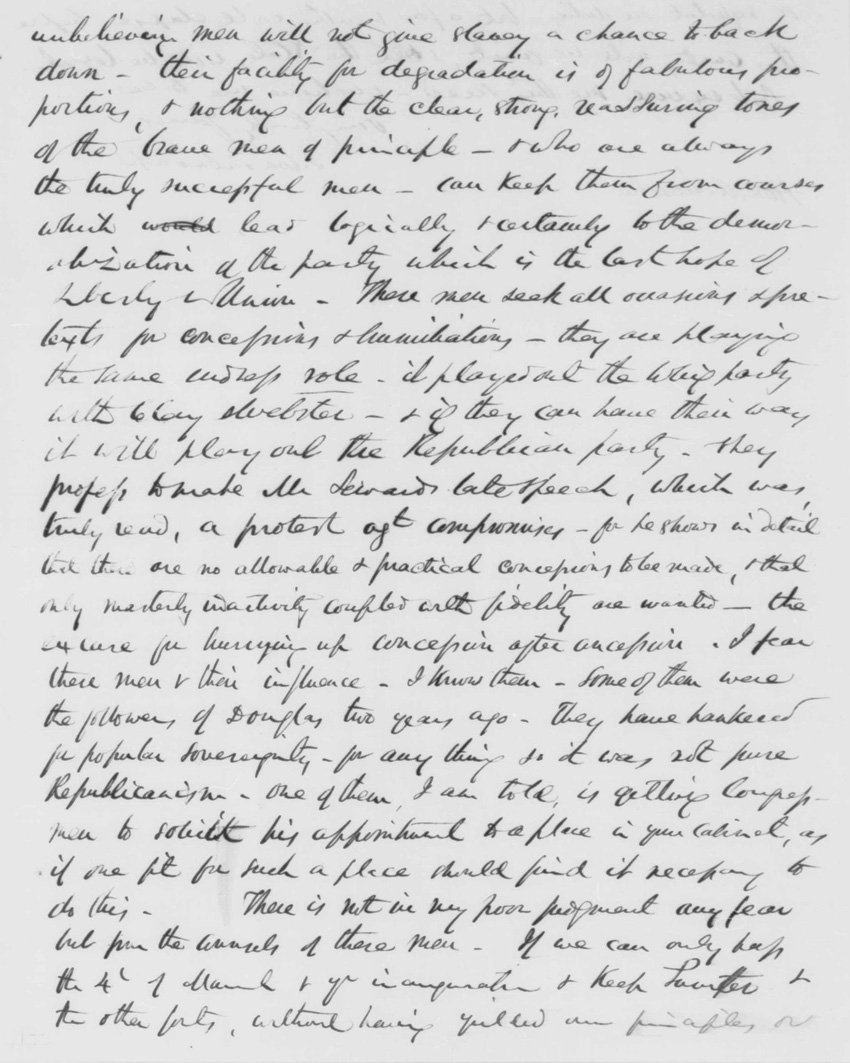 unbelieving men will not give slavery a chance to back
down - their facility for degradation is of fabulous pro-
portions, & nothing but the clear, strong, reassuring tones
of the brave men of principle - & who are always
the truly successful men - can keep them from courses
which would lead logically & certainly to the demor-
alization of the party which is the last hope of
Liberty & Union - These men seek all occasions & pre-
texts for concessions & humiliations - they are playing
the same endless role - it played out the Whig party
with Clay & Webster - & if they can have their way
it will play out the Republican party - They
profess to make Mr Sewards late speech, which was,
truly read, a protest agt compromises - for he shows in detail
that there are no allowable & practical concessions to be made, & that
only masterly inactivity coupled with fidelity are wanted - the
excuse for hurrying up concession after concession - I fear
these men & their influence - I know them - Some of them were
the followers of Douglas two years ago - They have hankered
for popular sovereignty - for any thing so it was not pure
Republicanism - one of them, I am told, is getting Congress-
men to solicit his appointment to a place in your Cabinet, as
if one fit for such a place should find it necessary to
do this - There is not in my poor judgment any fear
but from the counsels of these men - If we can only pass
the 4th of March & yr inauguration & keep Sumter &
the other forts, without having yielded our principles or